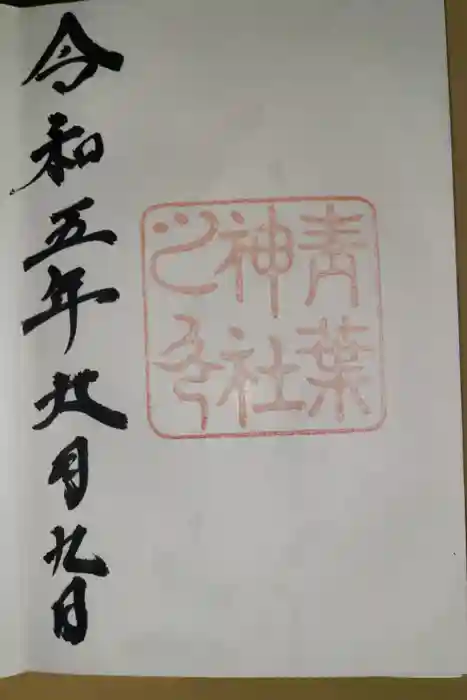 青葉
神社
之印
令和五年月九日